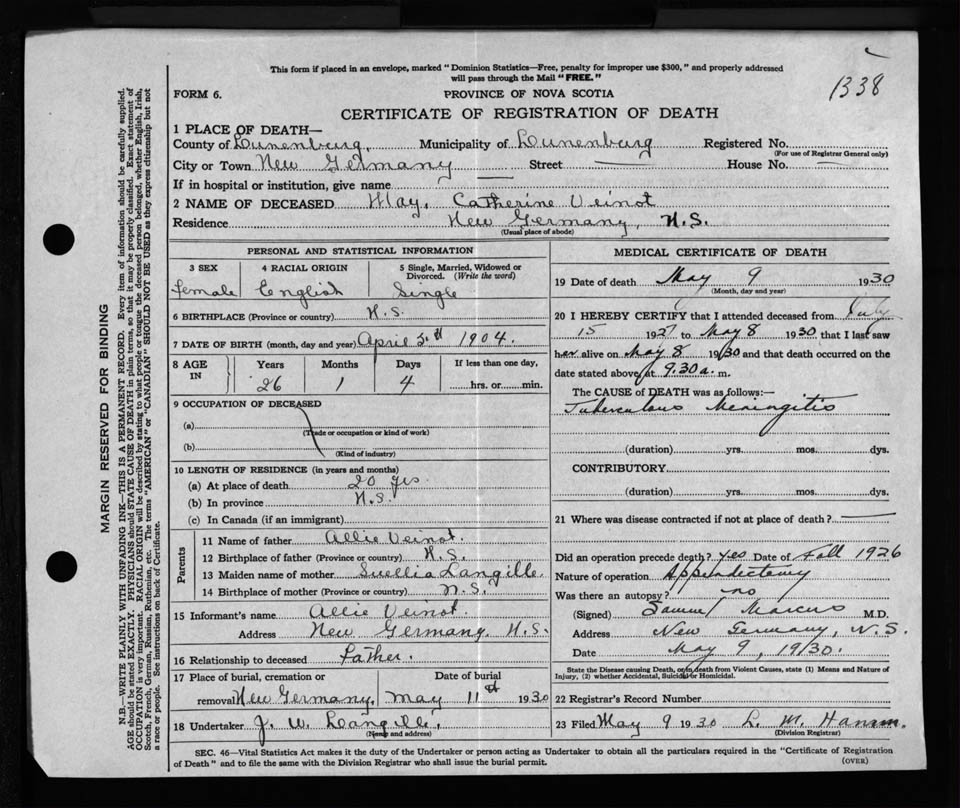 This form if placed in an envelope, marked "Dominion Statistics—Free, penalty for improper use $300," and properly addressed
will pass through the Mail "FREE."
1338
FORM 6.
PROVINCE OF NOVA SCOTIA
CERTIFICATE OF REGISTRATION OF DEATH
1 PLACE OF DEATH—
County of Lunenburg, Municipality of Lunenburg Registered No.
(For use of Registrar General only)
City or Town New Germany Street — House No.
If in hospital or institution, give name —
2 NAME OF DECEASED May, Catherine Veinot
Residence New Germany, N.S.
(Usual place of abode)
PERSONAL AND STATISTICAL INFORMATION
3 SEX 4 RACIAL ORIGIN 5 Single, Married, Widowed or
Divorced. (Write the word)
female English Single
6 BIRTHPLACE (Province or country) N.S.
7 DATE OF BIRTH (month, day and year) April 5th 1904.
8 AGE IN Years Months Days If less than one day,
26 1 4 hrs. or min.
9 OCCUPATION OF DECEASED
(a)
(Trade or occupation or kind of work)
(b)
(Kind of industry)
10 LENGTH OF RESIDENCE (in years and months)
(a) At place of death 20 yrs
(b) In province N.S.
(c) In Canada (if an immigrant)
Parents
11 Name of father Allie Veinot.
12 Birthplace of father (Province or country) N.S.
13 Maiden name of mother Langille
14 Birthplace of mother (Province or country) N.S.
15 Informant's name Allie Veinot.
Address New Germany. N.S.
16 Relationship to deceased Father.
17 Place of burial, cremation or Date of burial
removal New Germany, May 11th 1930
18 Undertaker J. W. Langille,
(Name and address)
MEDICAL CERTIFICATE OF DEATH
19 Date of death May 9 1930
(Month, day and year)
20 I HEREBY CERTIFY that I attended deceased from July
15 1927 to May 8 1930 that I last saw
her alive on May 8 1930 and that death occurred on the
date stated above, at 9.30 a. m.
The CAUSE of DEATH was as follows:—
Tuberculous Meningitis
(duration) yrs. mos. dys.
CONTRIBUTORY
(duration) yrs. mos. dys.
21 Where was disease contracted if not at place of death? —
Did an operation precede death? yes Date of Fall 1926
Nature of operation Appendectomy
Was there an autopsy? no
(Signed) Samuel Marcus M.D.
Address New Germany, N.S.
Date May 9, 1930.
State the Disease causing Death, or in death from Violent Causes, state (1) Means and Nature of
Injury, (2) whether Accidental, Suicidal or Homicidal.
22 Registrar's Record Number
23 Filed May 9 1930 L. M.
(Division Registrar)
SEC. 46—Vital Statistics Act makes it the duty of the Undertaker or person acting as Undertaker to obtain all the particulars required in the "Certificate of Registration
of Death" and to file the same with the Division Registrar who shall issue the burial permit.
(OVER)
MARGIN RESERVED FOR BINDING
N.B.—WRITE PLAINLY WITH UNFADING INK—THIS IS A PERMANENT RECORD. Every item of information should be carefully supplied.
AGE should be stated EXACTLY. PHYSICIANS should STATE CAUSE OF DEATH in plain terms, so that it may be properly classified. Exact statement of
OCCUPATION is very important. RACIAL ORIGIN will be described by stating to what people or tongue the deceased person belonged, whether English, Irish,
Scotch, French, German, Russian, Ruthenian, etc. The terms "AMERICAN" or "CANADIAN" SHOULD NOT BE USED as they express citizenship but not
a race or people. See instructions on back of Certificate.